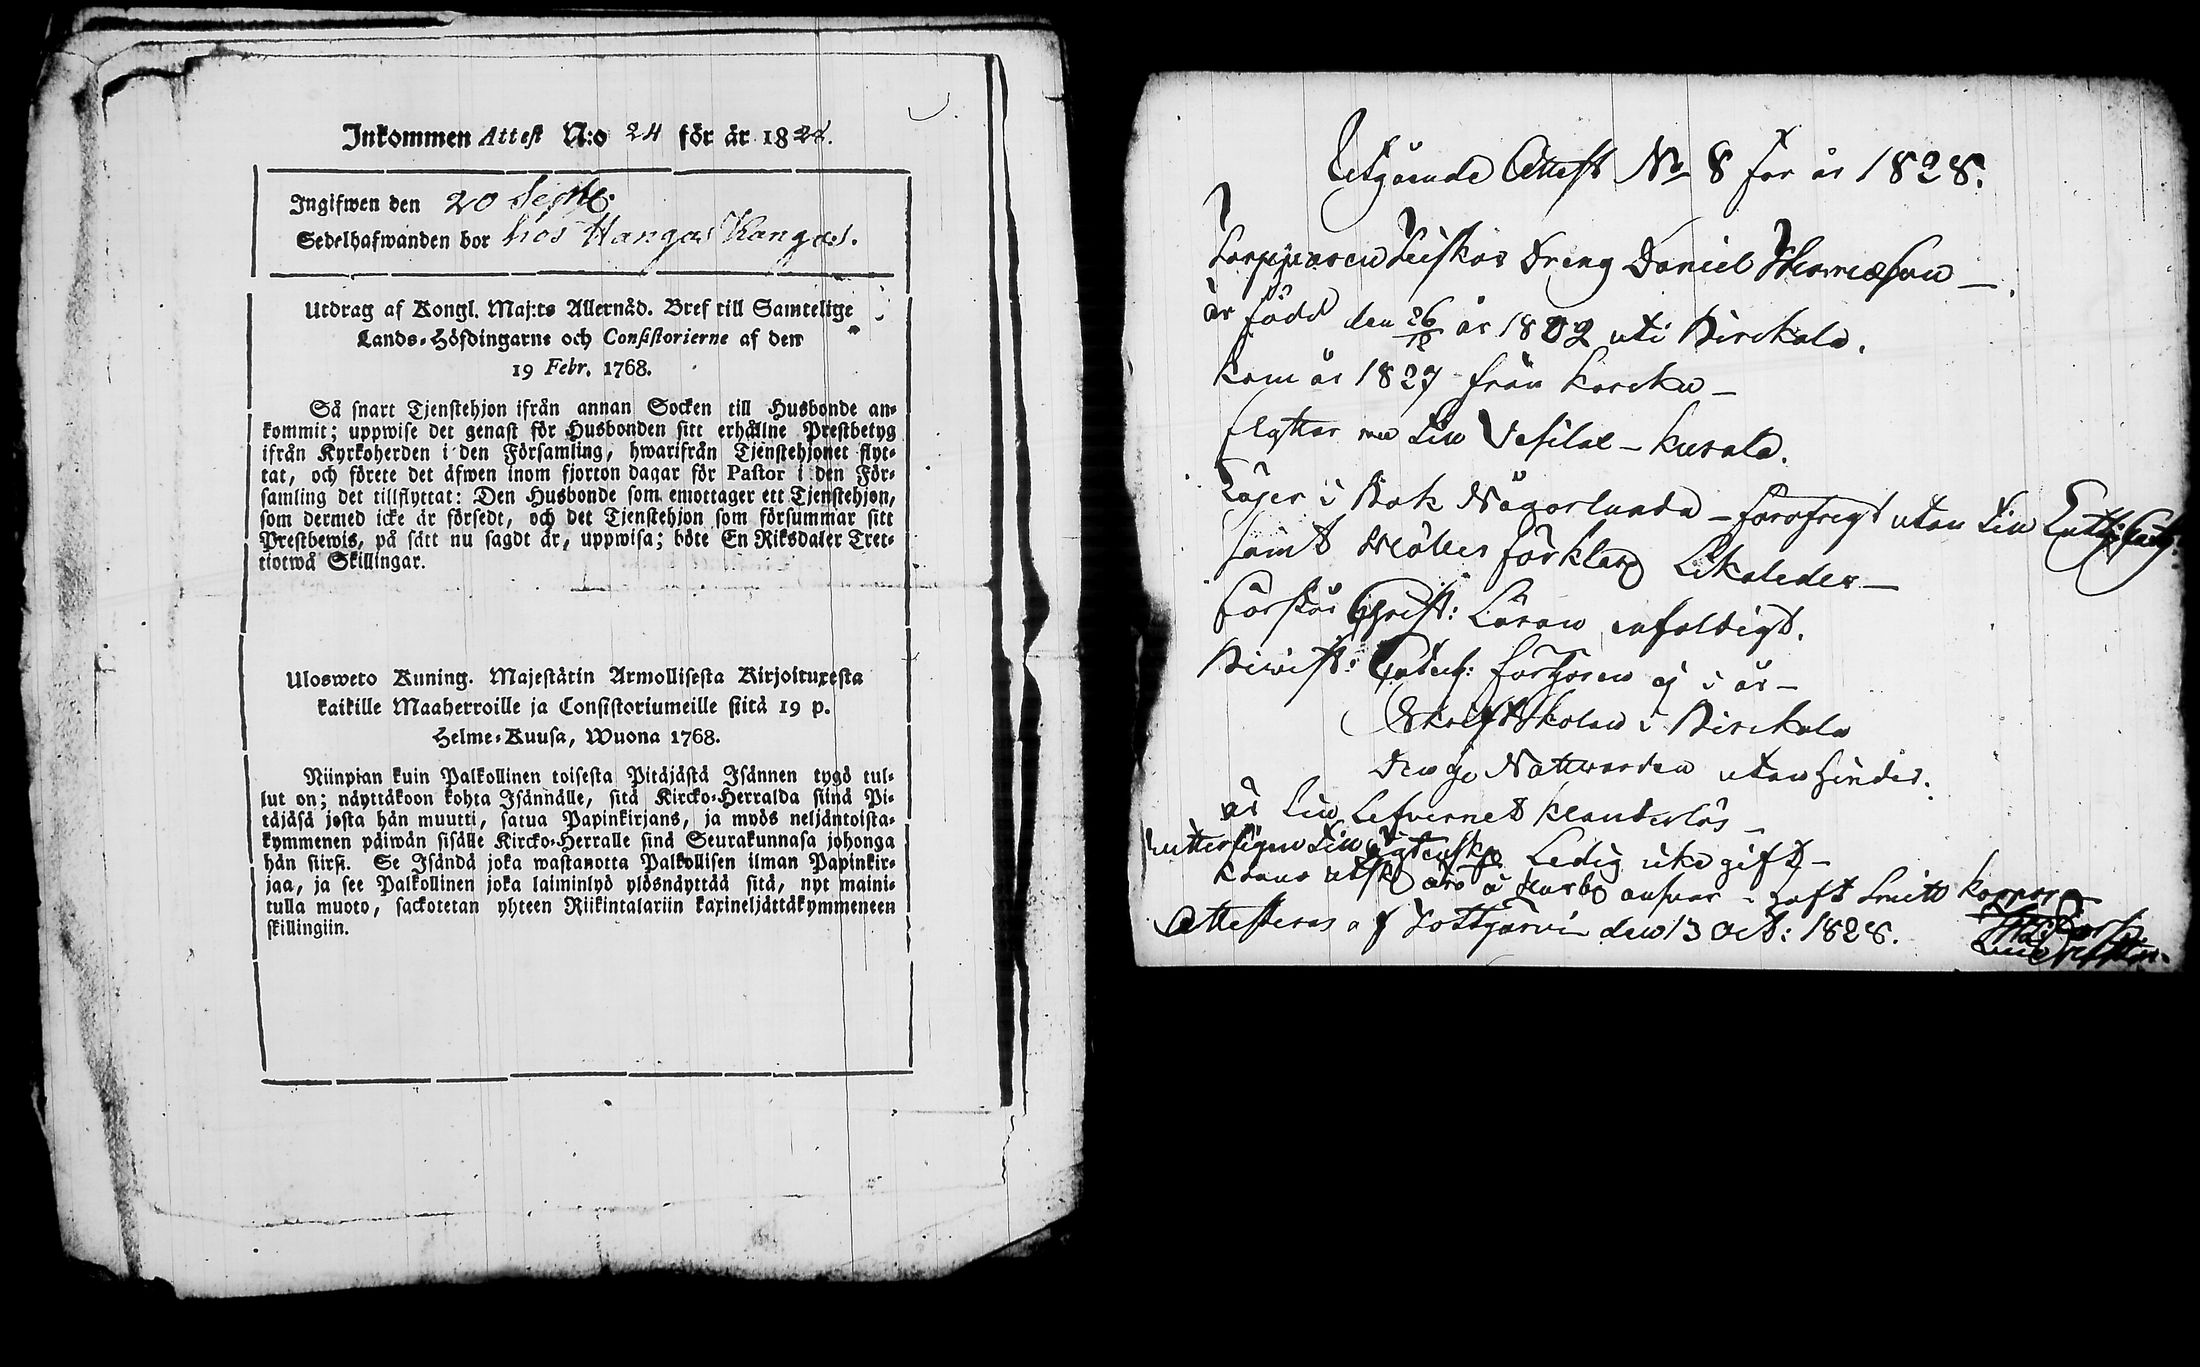 Inkommen Attest N:o 24 för år 1828.
Ingifwen den 20 Septbr.
Sedelhafwanden bor hos Hangas Kangas.
Utdrag af Kongl. Maj:ts Allernåd. Bref till Samtelige
Lands-Höfdingarne och Consistorierne af den
19 Febr. 1768.
Så snart Tjenstehjon ifrån annan Socken till Husbonde an-
kommit; uppwise det genast för Husbonden sitt erhållne Prestbetyg
ifrån Kyrkoherden i den Församling, hwarifrån Tjenstehjonet flyt-
tat, och förete det äfwen inom fjorton dagar för Pastor i den För-
samling det tillflyttat: Den Husbonde som emottager ett Tjenstehjon,
som dermed icke är försedt, och det Tjenstehjon som försummar sitt
Prestbewis, på sätt nu sagdt är, uppwisa; böte En Riksdaler Tret-
tiotwå Skillingar.
Ulosweto Kuning. Majestätin Armollisesta Kirjoituxesta
kaikille Maaherroille ja Consistoriumeille siitä 19 p.
Helme-Kuusa, Wuona 1768.
Niinpian kuin Palkollinen toisesta Pitäjästä Isännen tygö tul-
lut on; näyttäkoon kohta Isännälle, sitä Kircko-Herralda siinä Pi-
täjäsä josta hän muutti, satua Papinkirjans, ja myös neljäntoista-
kymmenen päiwän sisälle Kircko-Herralle sinä Seurakunnasa johonga
hän siirsi. Se Isändä joka wastanotta Palkollisen ilman Papinkir-
jaa, ja see Palkollinen joka laiminlyö ylösnäyttää sitä, nyt maini-
tulla muoto, sackotetan yhteen Riikintalariin kaxineljättäkymmeneen
skillingiin.
Utgående Attest No 8 for år 1828.
Torpparen Dreng Daniel Thomæson
är född den 26/12 år 1802 uti Birckala.
Kom år 1827 från Karcku
flyttar nu till Vesilax - Kurala.
Läser i Bok Någorlunda - försvarligt utan till
samt förklar Likaledes
förstår Christ: Läran enfaldigt.
Bivist: Catech: förhören ej i år
Skriftskolan i Birckala
Den H. Nattwarden utan hinder.
är till Lefvernet klanderlös
till Ägtenskap Ledig icke gift
Krono utsk. å Husb. ansvar - haft Smitt koppor
Attesteras af Tottjärvi den 13 Oct: 1828.